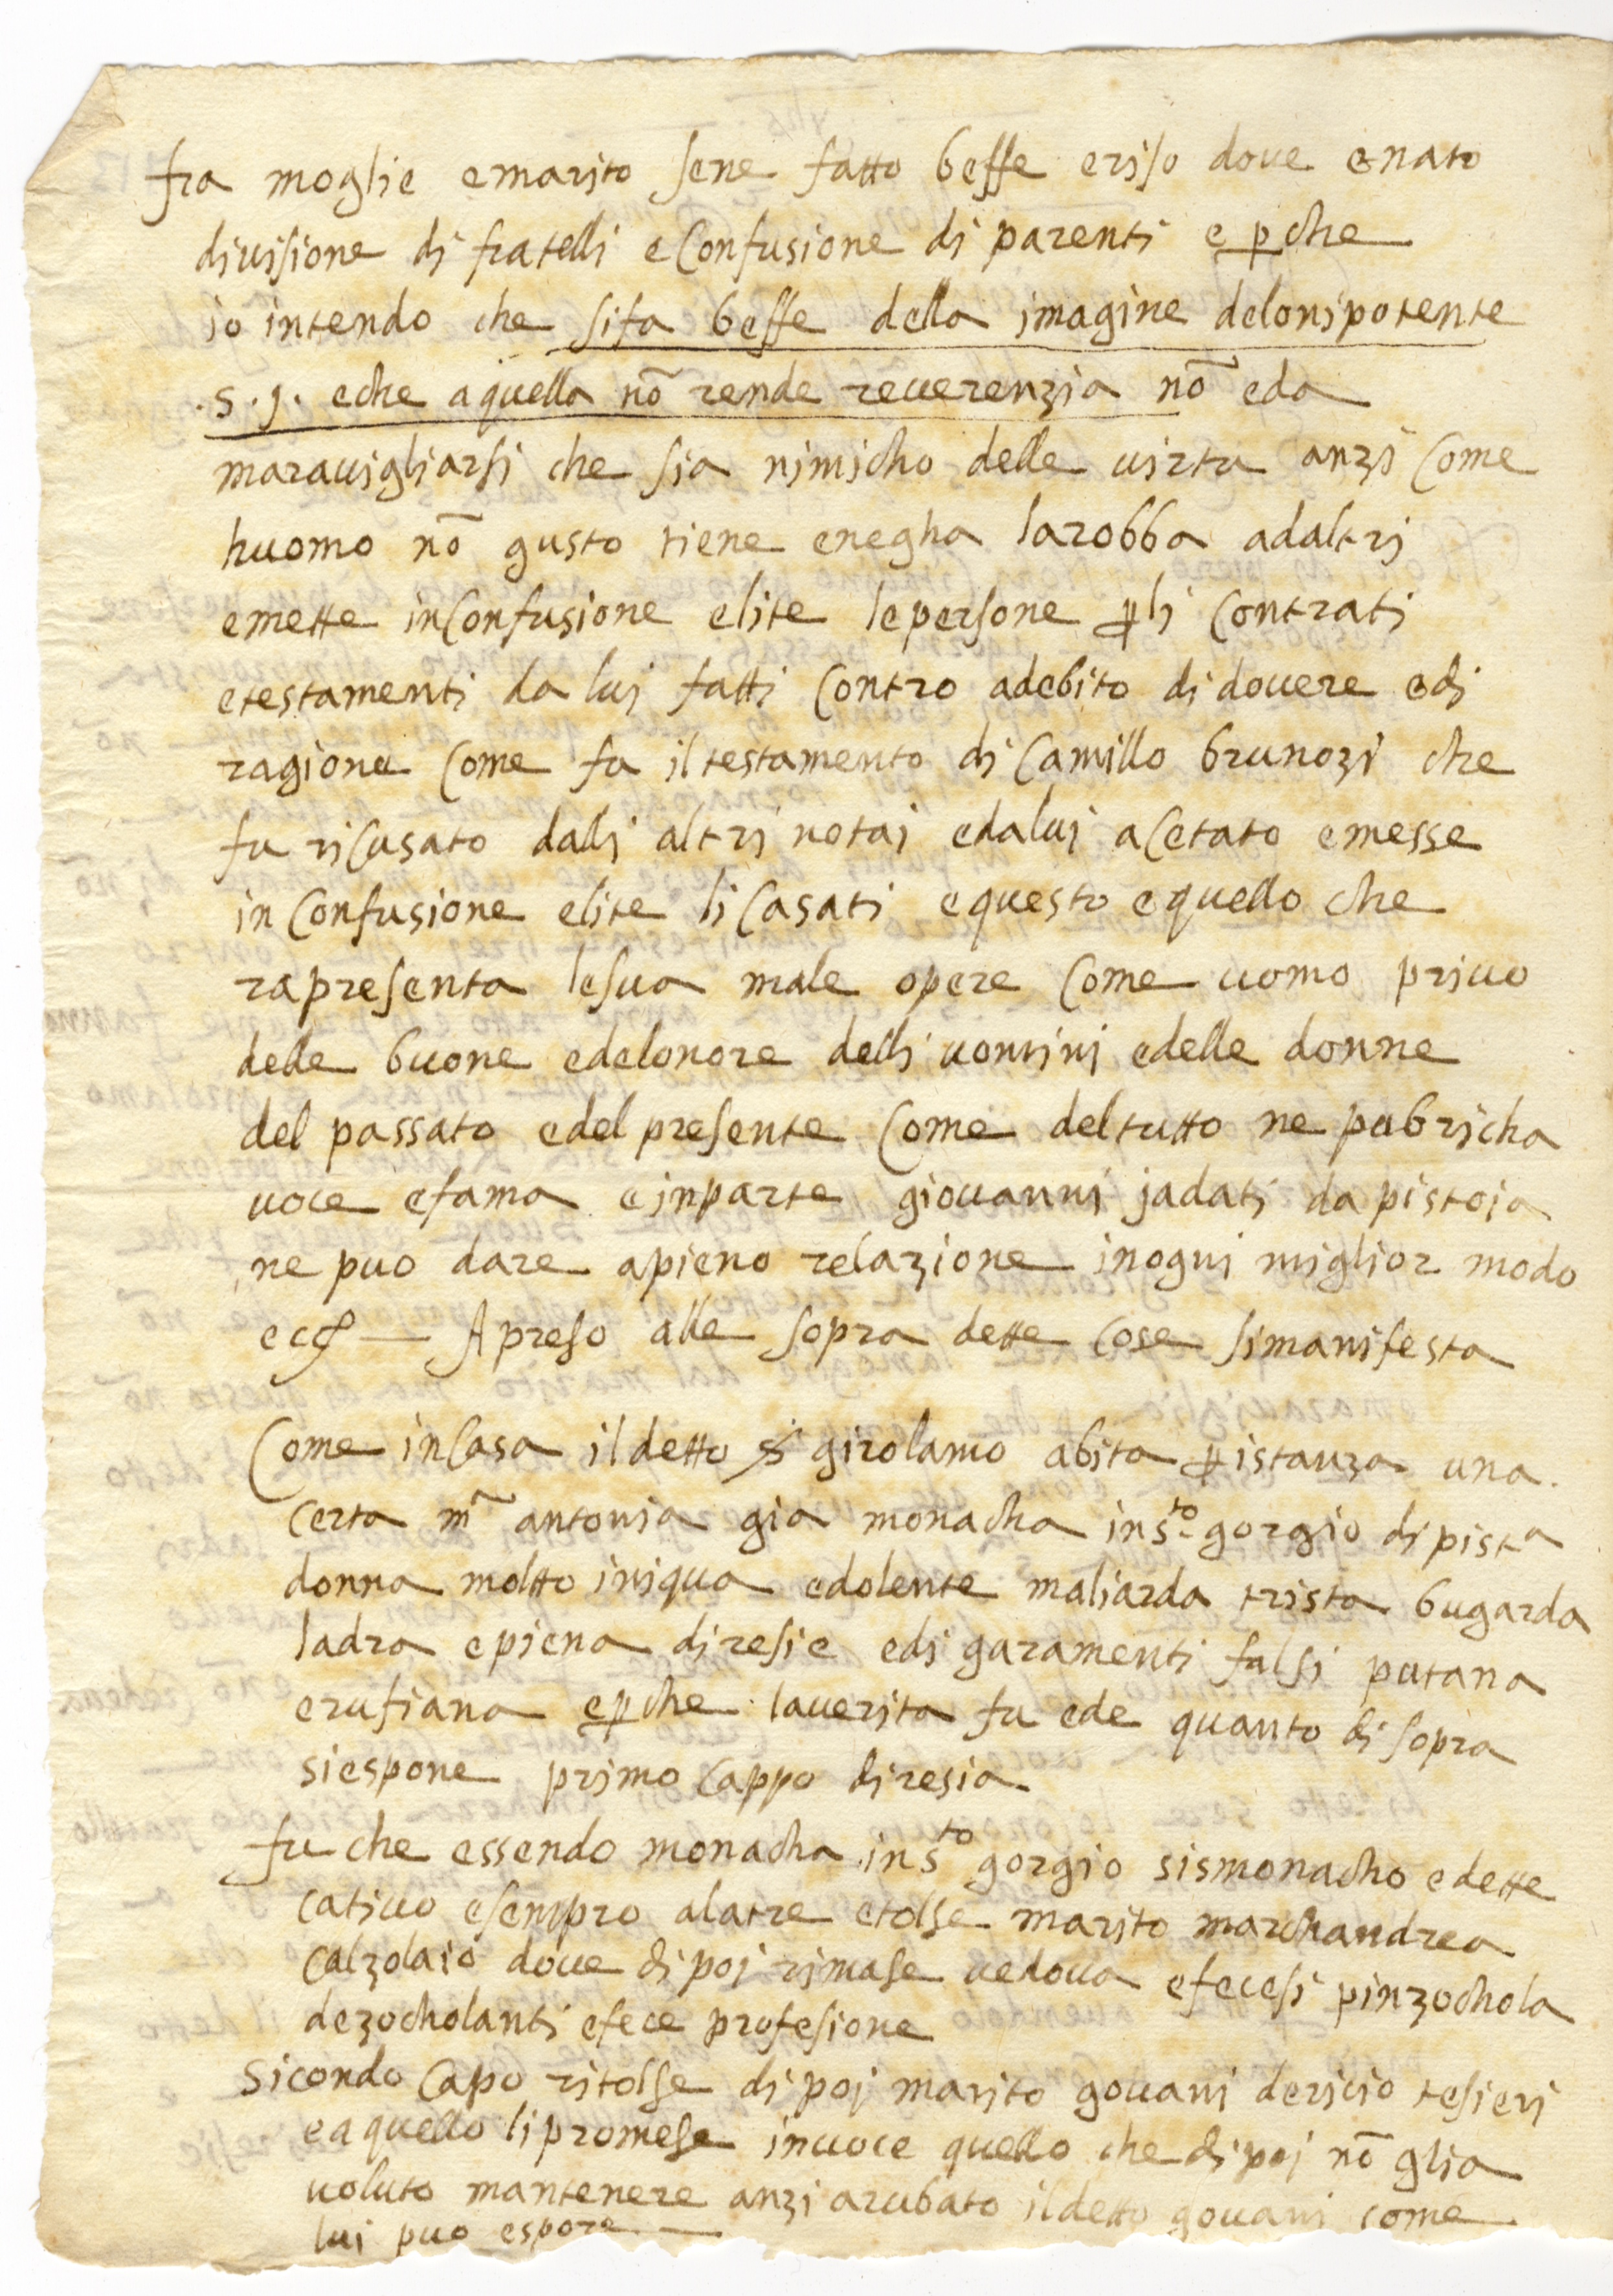 fra moglie emarito sene fatto beffe eriso dove enato
divisione di fratelli e Confusione di parenti e p che
io intendo che sifa beffe della imagine delonipotente
.s.j. eche aquella nō rende reverenzia nō eda
maravigliarsi che sia nimicho delle virtu anzi Come
huomo nō gusto tiene enegha larobba adaltri
emette inConfusione elite lepersone p li Contrati
etestamenti da lui fatti Contro adebito didovere edi
ragione Come fu iltestamento di Camillo brunozi che
fu riCusato dalli altri notai edalui aCetato emesse
in Confusione elite li Casati equesto equello che
rapresenta lesua male opere Come uomo privo
delle buone edelonore delli uomini edelle donne
del passato edel presente Come deltutto ne pubricha
voce efama einparte giovanni jadati da pistoia
ne puo dare apieno relazione inogni miglior modo
ecc — Apreso alle sopra dette Cose simanifesta
Come inCasa ildetto s girolamo abita p istanza una
Certa mᵃ antonia gia monacha in sᵗᵒ gorgio di pistᵃ
donna moltto iniqua edolente maliarda trista bugarda
ladra epiena diresie edi guramenti falsi putana
erufiana e p che laverita fu ede quanto di sopra
siespone primo Cappo diresia
fu che essendo monacha in sᵗᵒ gorgio sismonacho edette
Cativo esempro alatre etolse marito marchandrea
Calzolaio dove di poi rimase vedova efecesi pinzochola
dezocholanti efece profesione
Sicondo Capo ritolse di poi marito govani dericio tesieri
eaquello lipromese invoce quello che di poi nō glia
voluto mantenere anzi arubato ildetto govani come
lui puo espore —